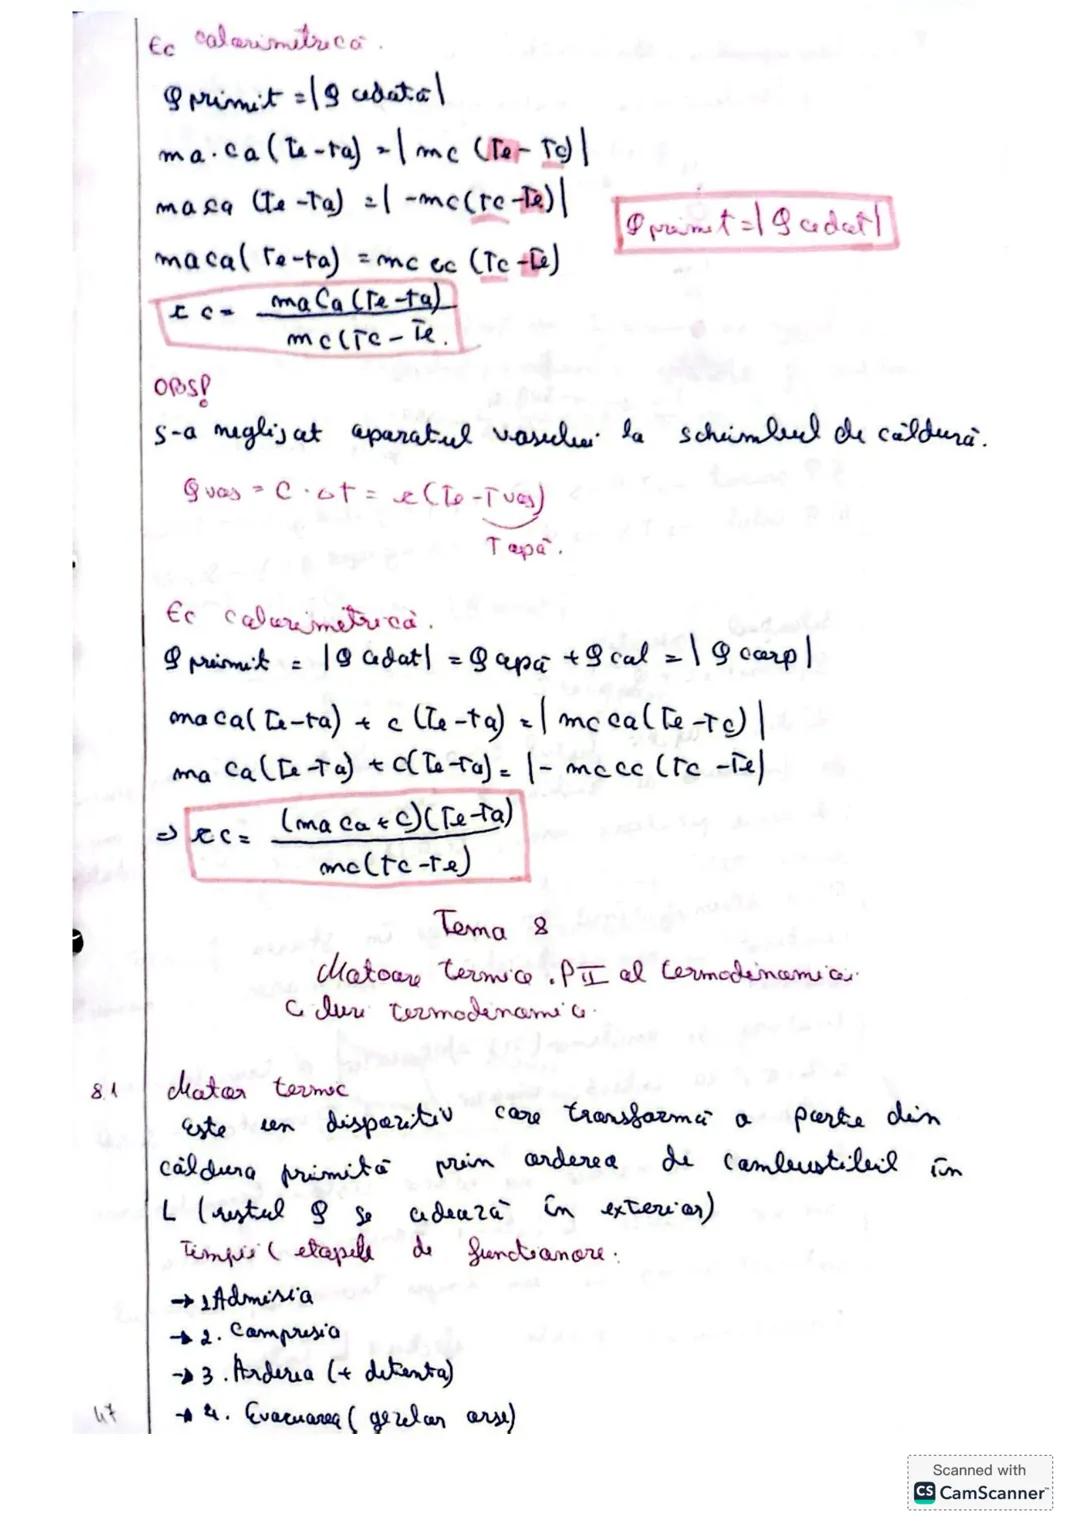 Ec calorimetrică.
Q primit = |Q cedată|
ma·ca (Te-ta) = | mc (Te - Tc) |
maca (Te -Ta) = | -mc(Tc-Te) |
Q primit = |Q cedat|
maca( Te-ta) = mc cc (Tc -Te)
c c = maCa (Te-ta)
mc(Tc - Te.
OBS!
S-a neglijat aparatul vasului la schimbul de căldură.
Q vas = C · ΔT = c (Te -T vas)
T apă.
Ec calorimetrică.
Q primit = |Q cedat| = Q apă + Q cal = | Q corp |
ma ca( Te-ta) + c (Te-ta) = | mc ca( Te -Tc) |
ma Ca (Te-Ta) + C( Te-Ta) = | - mc cc (Tc -Te|
=> cc = (ma ca + C)(Te-Ta)
mc(Tc -Te)
Tema 8
Motoare termice. P II al termodinamicii.
Cicluri termodinamice.
8.1 Motor termic
Este un dispozitiv care transformă a parte din
căldura primită prin arderea de combustibil în
L (restul Q se cedează în exterior)
Timpii ( etapele de funcționare:
→ 1 Admisia
→ 2. Compresia
→ 3. Arderea (+ detenta)
→ 4. Evacuarea ( gazelor arse)
47
Scanned with
CS CamScanner